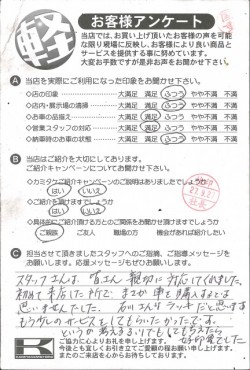 軽
お客様アンケート
当店では、お買い上げ頂いたお客様の声を可能
な限り現場に反映し、お客様により良い商品と
サービスを提供する事に努めています。
大変お手数ですが是非お声をお聞かせ下さい。
A 当店を実際にご利用になった印象をお聞かせ下さい。
◇店の印象 大満足 満足 ふつう やや不満 不満
◇店内・展示場の清掃 大満足 満足 ふつう やや不満 不満
◇お車の品揃え 大満足 満足 ふつう やや不満 不満
◇営業スタッフの対応 大満足 満足 ふつう やや不満 不満
◇納車時のお車の状態 大満足 満足 ふつう やや不満 不満
B 当店はご紹介を大切にしてあります。
ご紹介キャンペーンについてお聞かせ下さい。
◇カミタケご紹介キャンペーンのご説明はありましたでしょうか
はい いいえ
◇ご紹介を頂けますでしょうか
はい いいえ
◇具体的にご紹介頂ける方とのご関係をお聞かせ頂けますでしょうか
ご親族 ご友人 職場の方 機会があれば紹介したい
C 担当させて頂きましたスタッフへのご指摘、ご指導メッセージを
お願いします。応援メッセージもぜひお願いします。
スタッフさんは、皆さん親切に対応してくれました。
初めて来店した
まさか車を購入するとは
思いませんでした。石川さん
もう少しのサービスをしてもらいたかったです。
というのも
好印象でした
ご協力に心よりお礼を申し上げます。
今後とも宜しくお引き立てご愛顧の程お願い申し上げます。
またのご来店を心からお待ちしております。